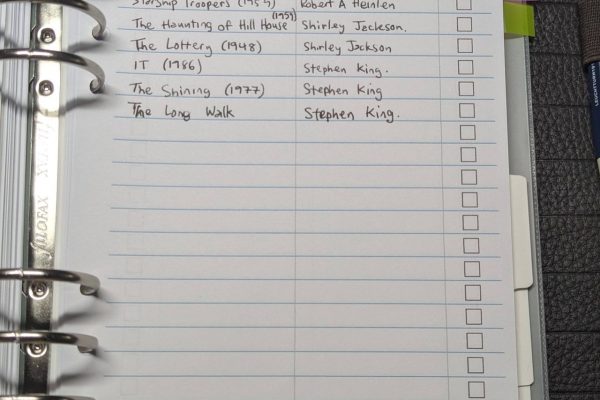 Starship Troopers (1959) Robert A Heinlen
The Haunting of Hill House (1959) Shirley Jackson.
The Lottery (1948) Shirley Jackson
IT (1986) Stephen King.
The Shining (1977) Stephen King
The Long Walk Stephen King.
FILOFAX
LEUCHTTURM1917